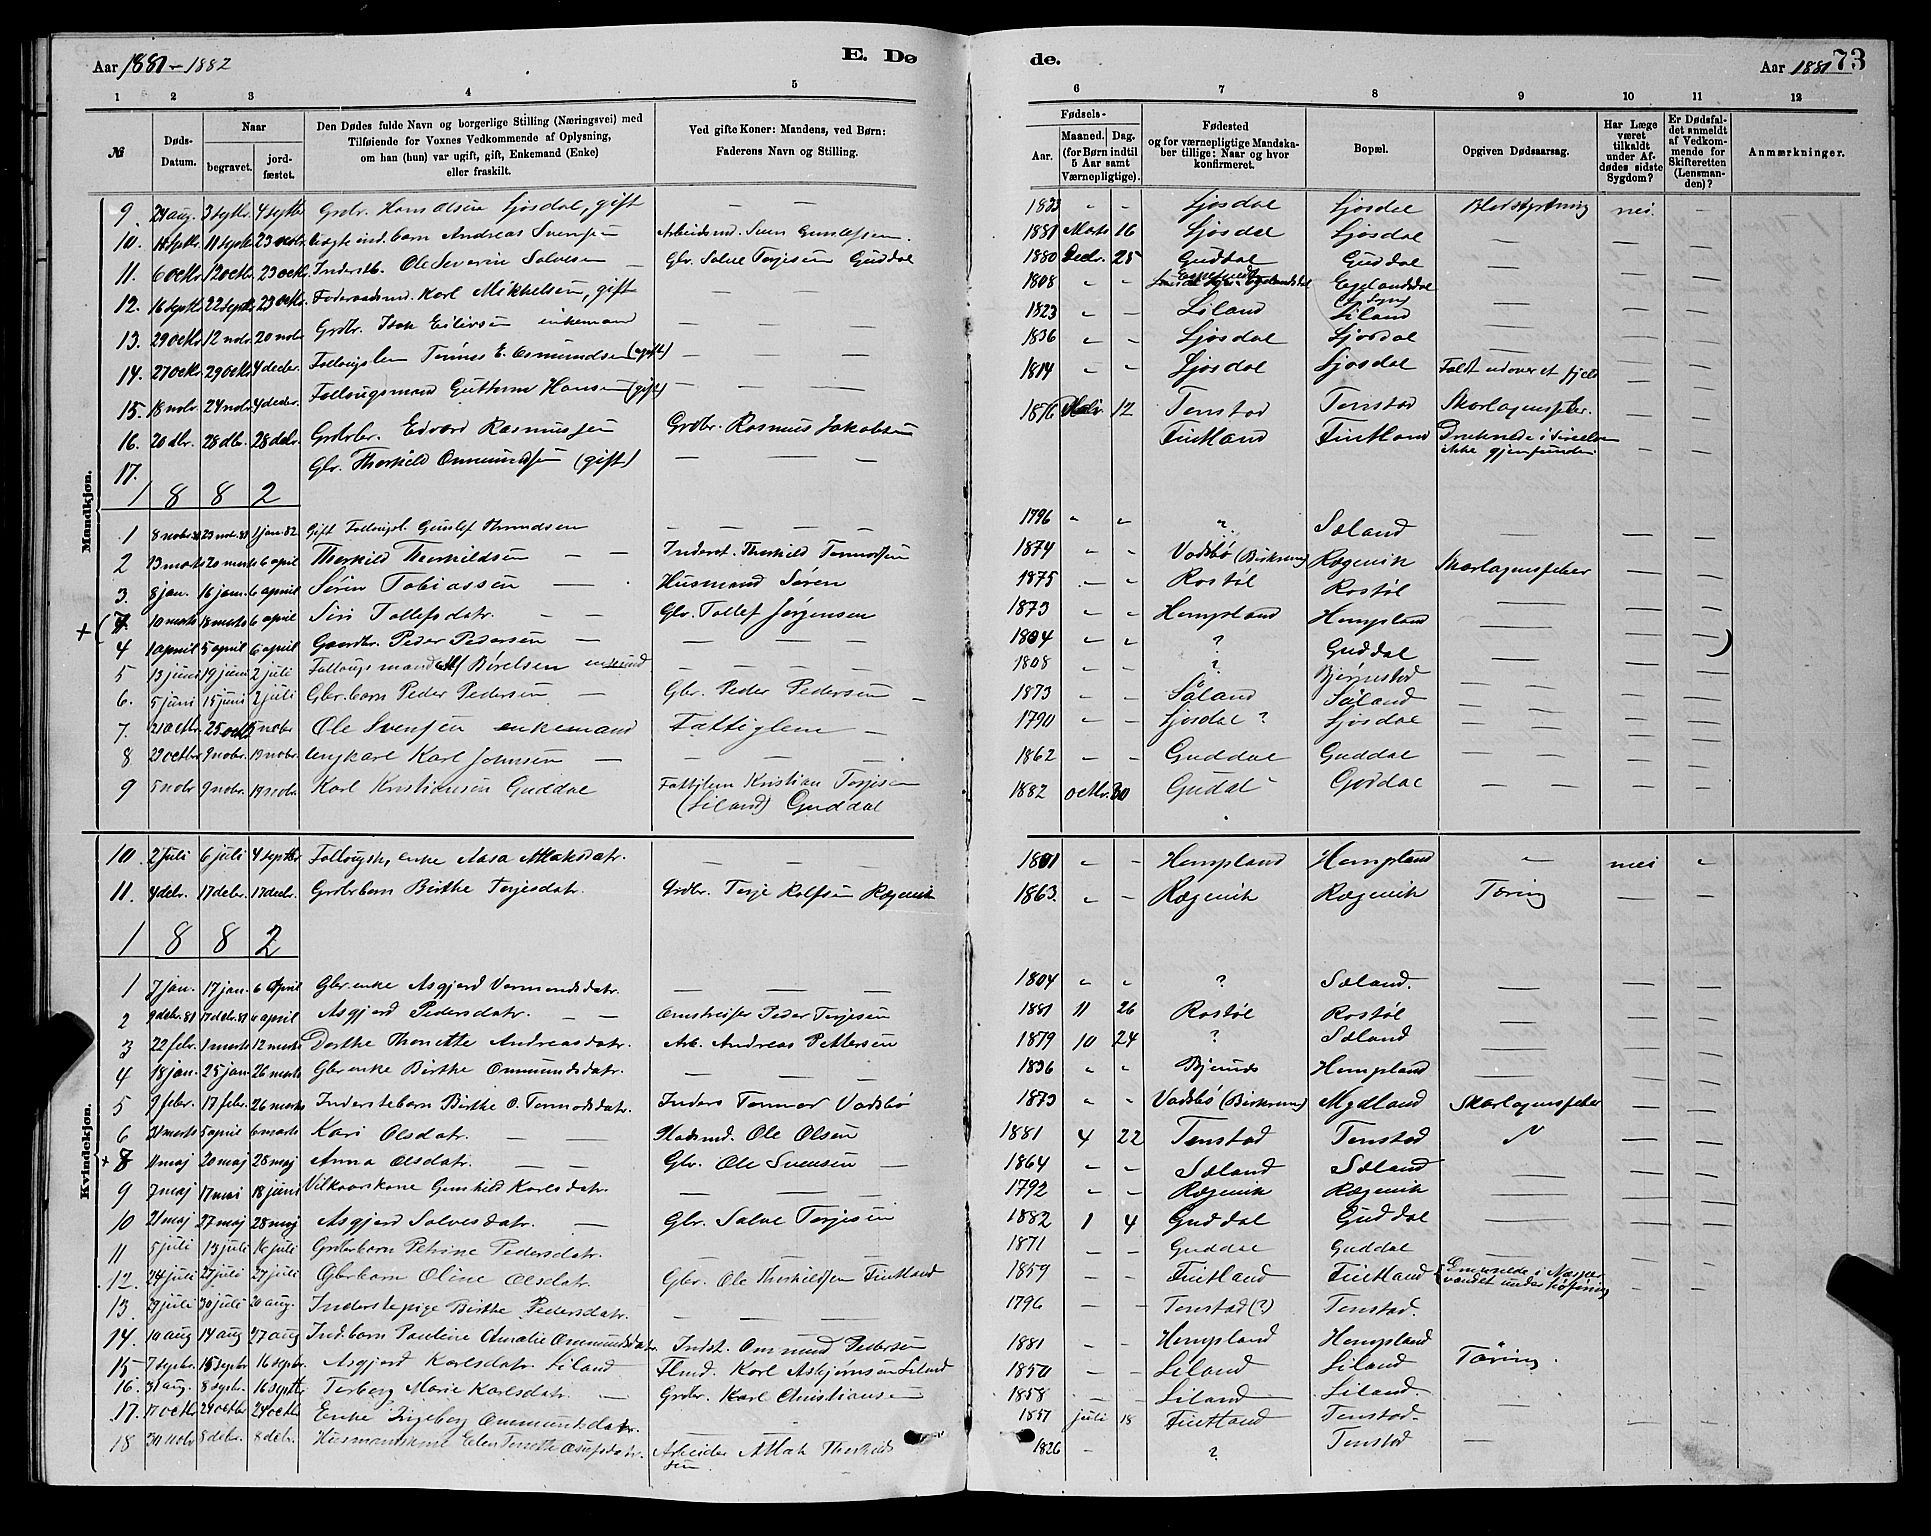 Aar 1881-1882
E. Dø
de.
Aar 1881
73
1 2 3 4 5 6 7 8 9 10 11 12
№
Døds-Datum.
Naar
begravet.
jord-fæstet.
Den Dødes fulde Navn og borgerlige Stilling (Næringsvei) med
Tilføiende for Voxnes Vedkommende af Oplysning,
om han (hun) var ugift, gift, Enkemand (Enke)
eller fraskilt.
Ved gifte Koner: Mandens, ved Børn:
Faderens Navn og Stilling.
Fødsels-
Aar.
Maaned. Dag.
(for Børn indtil
5 Aar samt
Værnepligtige).
Fødested
og for værnepligtige Mandska-
ber tillige: Naar og hvor
konfirmeret.
Bopæl.
Opgiven Dødsaarsag.
Har Læge
været
tilkaldt
under Af-
dødes sidste
Sygdom?
Er Dødsfal-
det anmeldt
af Vedkom-
mende for
Skifteretten
(Lensman-
den)?
Anmærkninger.
Mandkjøn.
9. 29 aug. 3 septbr. 4 septbr Grdbr. Hans Olsen Ljosdal, gift — — 1833 " - Ljosdal Ljosdal Blodstyrtning nei. —
10. 11 septbr 23 octbr Andreas Svensen Arbeidsmd. Sven Gunlefsen. 1881 Marts 16 Ljosdal Ljosdal — — —
11. 6 octbr 12 octbr 23 octbr Inderstb. Ole Severin Salvesen — Gbr. Salve Terjesen Guddal 1880 Decbr. 25 Guddal Guddal — — —
12. 16 septbr 22 septbr 23 octbr. Føderaadsmd. Karl Mikkelsen, gift — — 1808 " - Egelandsdal — — —
13. 29 octbr 12 nobr 20 nobr Grdbr. Isak Eilevsen enkemand — — 1823 " - Liland Liland — — —
14. 27 octbr 29 octbr 4 decbr. Tønnes E. Osmundsen (ugift) — — 1836 " - Ljosdal Ljosdal — — —
15. 18 nobr 24 nobr 4 decbr Follougsmand Guttorm Hansen (gift) — — 1814 " - Ljosdal Ljosdal Faldt udover et fjeld — —
16. 20 dbr. 28 dbr. 28 debr. Edvard Rasmussen Grdbr. Rasmus Jakobsen 1876 12 Tenstad Tenstad Skarlagensfeber. — —
17. Gbr. Thorkild Ommundsen (gift) — — Fintland Fintland Druknede i Sireelven ikke gjenfunden. — —
1 8 8 2
1 8 nobr 81 23 nobr. 81 1 jan. 82 Gift Follougsl. Gunlef Thrundsen — — — 1796 " " ? Sæland — — —
2 13 marts 20 marts 6 april Thorkild Thorkildsen — — Inderst. Thorkild Tormodsen 1874 " - Vadsbø (Birkrem) Rægevik Skarlagensfeber — —
3 8 jan. 16 jan. 6 april Søren Tobiassen — Husmand Søren 1875 — - Rostøl Rostøl — — —
+ (7 10 marts 18 marts 6 april Siri Tollefsdatr. — — Gbr. Tollef Jørgensen 1873 - - Hompland Hompland — — —)
4 1 april 5 april 6 april Gaardbr. Peder Pedersen — — — — 1804 " - ? Guddal — — —
5 13 juni 19 juni 2 juli Follougsmand Børelsen enkemd — — — 1808 - - ? Bjørnestad — — —
6. 5 juni 15 juni 2 juli Gbr. barn Peder Pedersen — Gbr. Peder Pedersen — 1873 - - Såland Såland — — —
7. 21 octbr. 25 octbr 5 nobr Ole Svensen enkemand Fattiglem — 1790 - - Ljosdal ? Ljosdal — — —
8 29 octbr 9 nobr. 19 nobr. Ungkarl Karl Johnsen — — — — 1862 " - Guddal Guddal — — —
9 5 nobr 9 nobr. 19 nobr. Karl Kristiansen Guddal Fattiglem Kristian Terjesen (Liland) Guddal 1882 octbr. 30 Gudal Goddal — — —
Kvindekjøn.
10. 2 juli 6 juli 4 septbr enke Aasa Atlaksdatr. — — 1801 " - Hompland Hompland — nei "
11. 4 debr. 17 debr. 17 decbr. Grdbrbarn Birthe Terjesdatr. Grdbr. Terje Rolfsen Rægevik 1863. " - Rægevik Rægevik Tæring — —
1 8 8 2
1 7 jan. 17 jan. 6 April Gbr. enke Asgjerd Vermundsdatr. — — — 1804 " " ? Sæland. — — —
2 9 debr. 81 17 debr. 81 6 april Asgjerd Pedersdatr. — — Omstreifer Peder Terjesen 1881 11 26 Rostøl Rostøl — — —
3 22 febr. 1 marts 12 marts Dorthe Thonette Andreasdatr. Arb. Andreas Pettersen 1879 10 24 ? Sæland — — —
4 18 jan. 25 jan. 26 marts Gbr enke Birthe Ommundsdatr. — — — 1836 " " Hompland — — —
5 9 febr. 17 febr. 26 marts Inderstebarn Birthe O. Tormodsdatr. Inders Tormod Vadsbø 1873 " - Vadsbø (Birkrem) Mydland Skarlagensfeber — —
6 21 marts 5 april 6 marts Kari Olsdatr. — — Pladsmd. Ole Olsen 1881 4 22 Tenstad Tenstad " — —
+ 8 11 maj 20 maj 28 maj Anna Olsdatr. — — Gbr. Ole Svensen — 1864 - - Sæland Sæland — — —
9 7 maj 17 mai 18 juni Vilkaarskone Gunhild Karlsdatr. — — — 1792 - - Rægevik Rægevik — — —
10 21 maj 27 maj 28 maj Asgjerd Salvesdatr. — Gbr. Salve Terjesen 1882 1 4 Guddal Guddal — — —
11 5 juli 13 juli 16 juli Grdbrbarn Petrine Pedersdatr. — — — 1871 — - Guddal Guddal — — —
12 24 juli 27 juli 27 juli Gbrbarn Oline Olsdatr. Gbr. Ole Thorkildsen Fintland 1859 - - Fintland Fintland
13. 29 juli 30 juli 20 aug. Inderstepige Birthe Pedersdatr. — — — 1796 - - Tenstad (?) Tenstad. — — —
14. 10 aug 14 aug 27 aug Ind. barn Pauline Amalie Ommundsdatr Indst. Ommund Pedersen 1881 - - Hompland Hompland — — —
15 7 septbr. 15 septbr 16 septbr. Asgjerd Karlsdatr. Liland Karl Asbjørnsen Liland 1850 - - Liland Liland Tæring. — —
16. 31 aug. 8 septbr. 16 septbr Torborg Marie Karlsdatr. — Grdbr. Karl Christiansen 1858 - - Liland Liland. — —
17. 17 octbr 29 octbr 24 octbr Enke Ingeborg Ommundsdatr. — 1857 juli 18 Fintland Tenstad. — — —
18 30 nobr 8 debr. 8 debr. Husmandskone Elen Tonette Osufsdatr. Arbeider Atlak Thorkildsen 1826 - ? Tenstad —